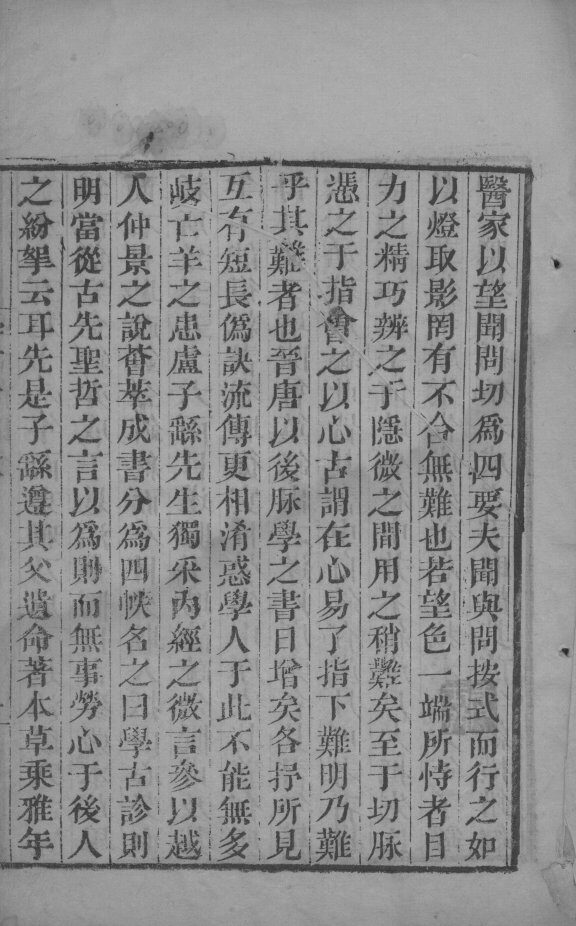 醫家以望聞問切爲四要夫聞與問按式而行之如
以燈取影罔有不合無難也若望色一端所恃者目
力之精巧辨之于隱微之間用之稍難矣至于切脉
憑之于指會之以心古謂在心易了指下難明乃難
乎其難者也晉唐以後脉學之書日增矣各抒所見
互有短長僞訣流傳更相淆惑學人于此不能無多
岐亡羊之患盧子繇先生獨采內經之微言參以越
人仲景之說薈萃成書分爲四帙名之曰學古診則
明當從古先聖哲之言以爲則而無事勞心于後人
之紛挐云耳先是子繇遵其父遺命著本草乘雅年